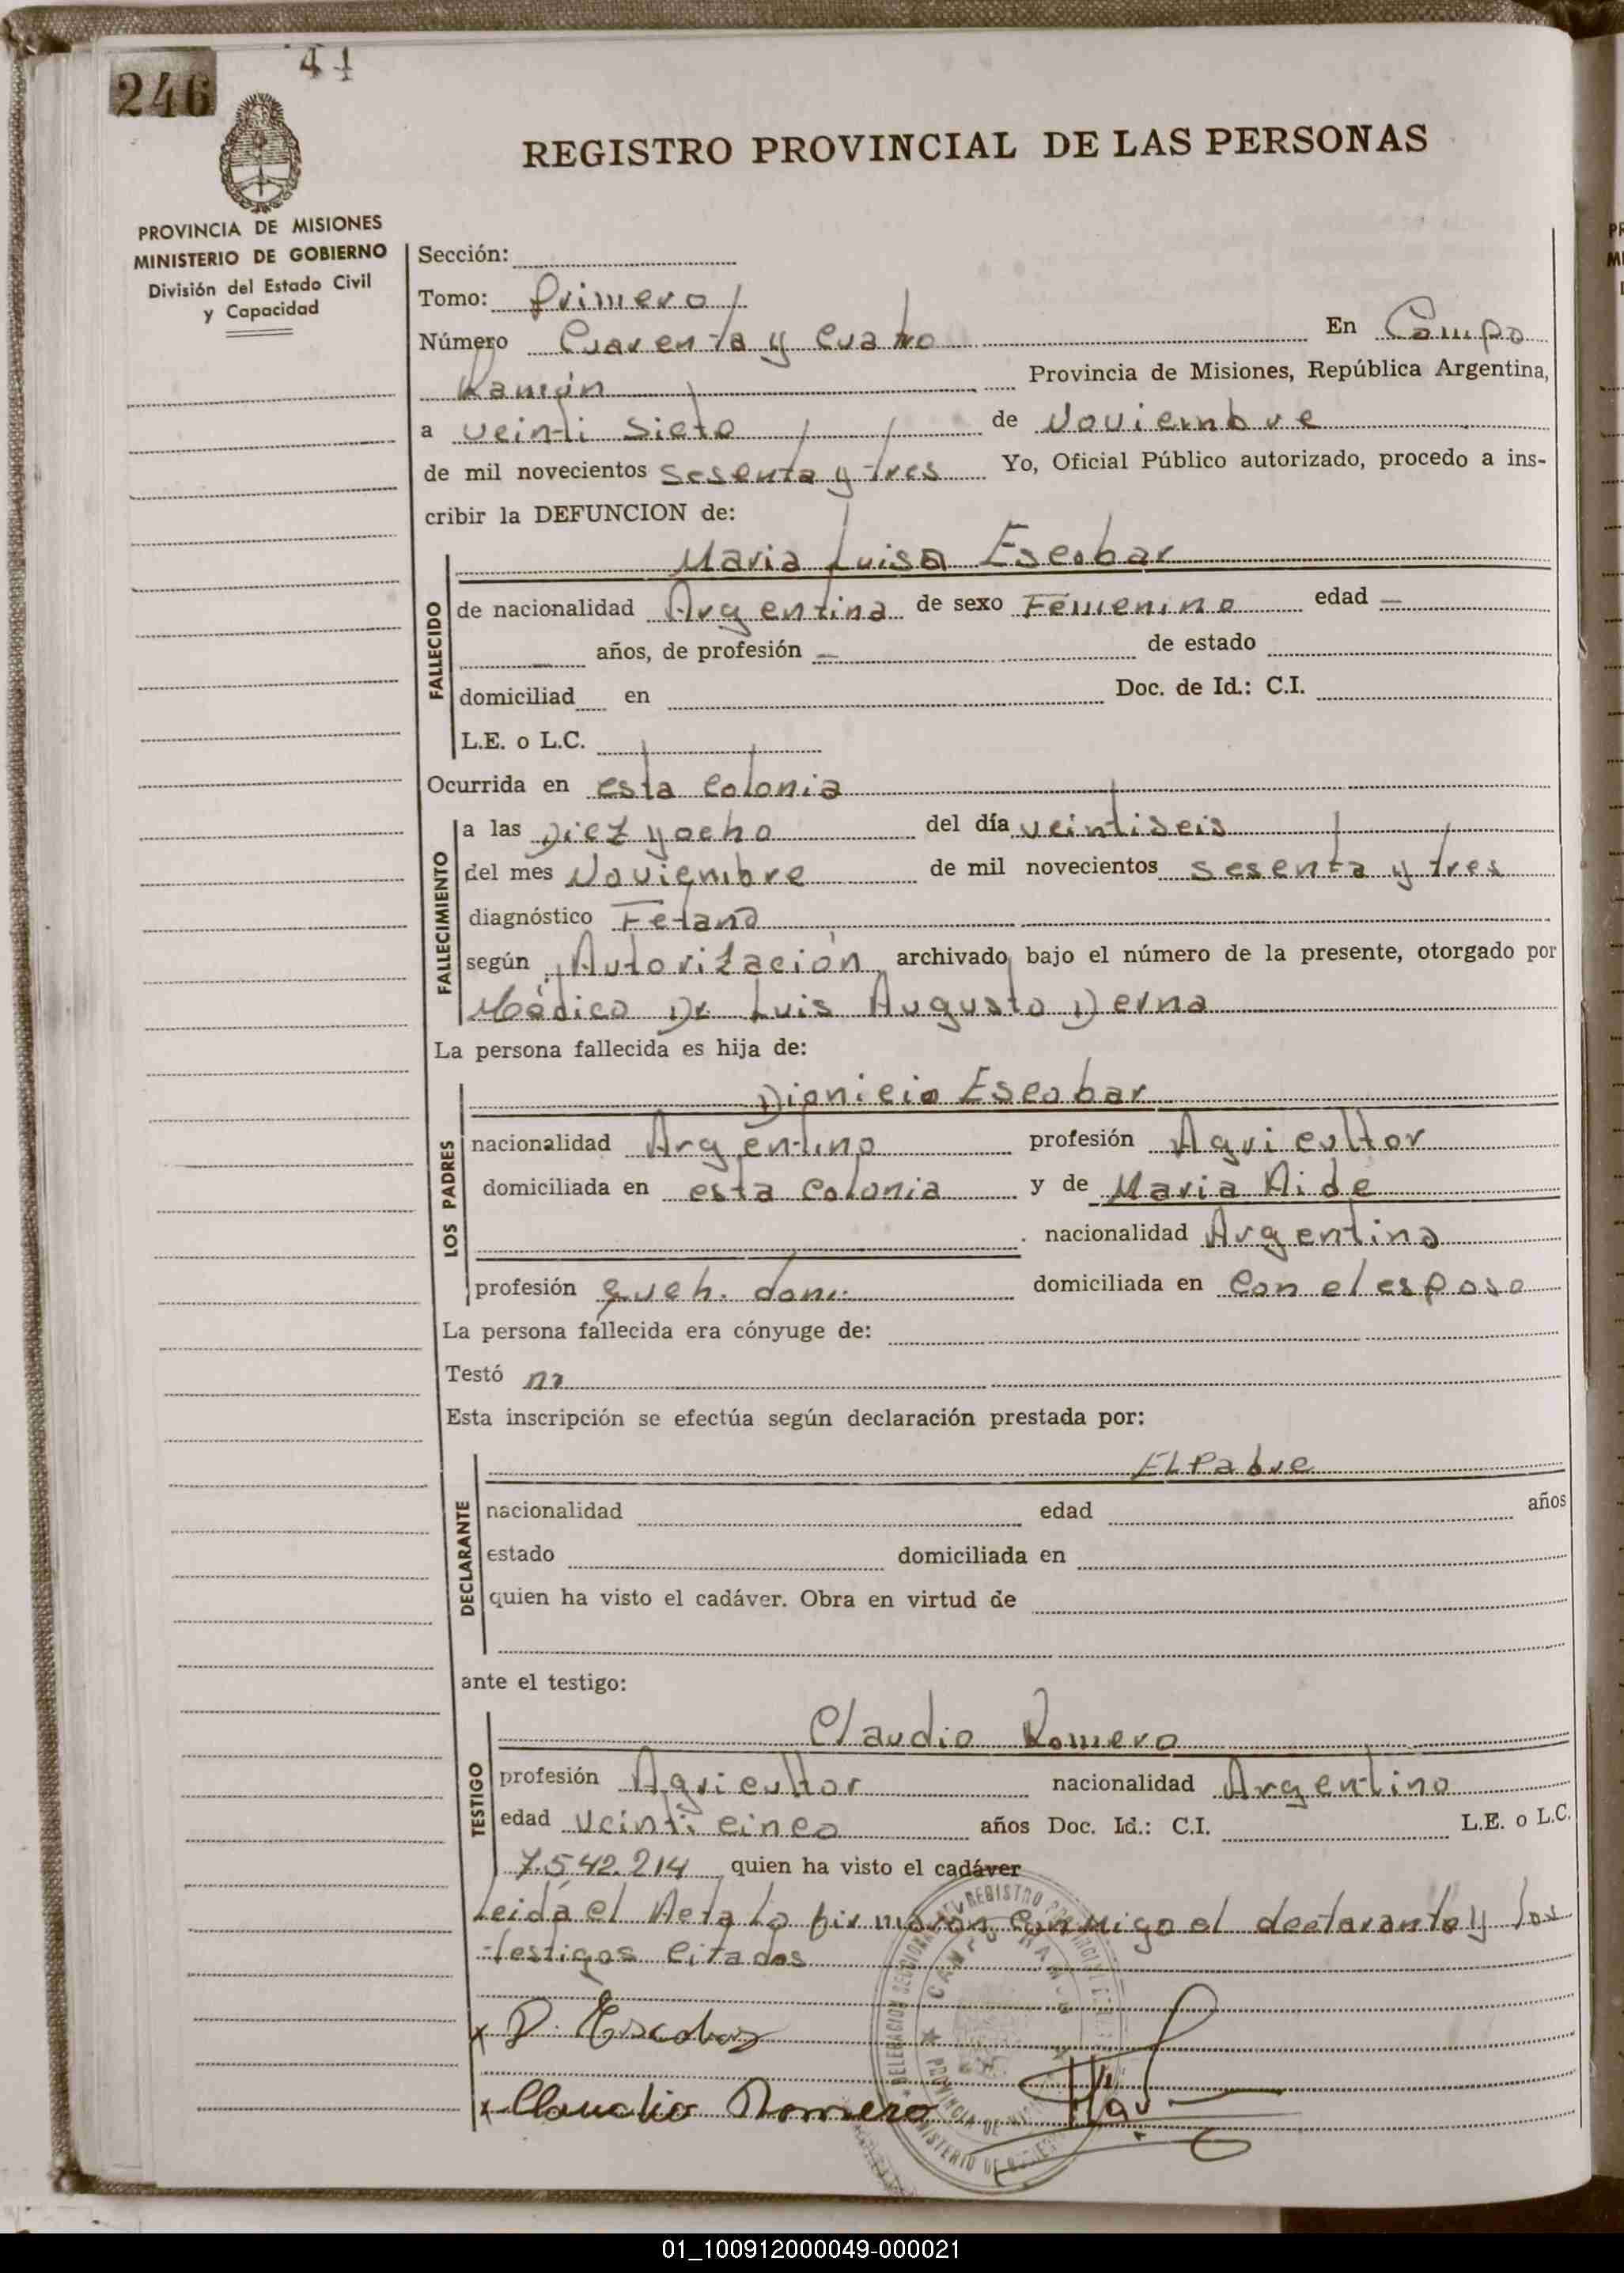 246
44
REGISTRO PROVINCIAL DE LAS PERSONAS
PROVINCIA DE MISIONES
MINISTERIO DE GOBIERNO
División del Estado Civil
y Capacidad
Sección:
Tomo: Primero
Número Cuarenta y cuatro En Campo
Ramón Provincia de Misiones, República Argentina,
a veinti siete de Noviembre
de mil novecientos sesenta y tres Yo, Oficial Público autorizado, procedo a ins-
cribir la DEFUNCION de:
Maria Luisa Escobar
FALLECIDO
de nacionalidad Argentina de sexo Femenino edad —
— años, de profesión — de estado
domiciliad en Doc. de Id.: C.I.
L.E. o L.C.
Ocurrida en esta colonia
FALLECIMIENTO
a las Diez y ocho del día veintiseis
del mes Noviembre de mil novecientos sesenta y tres
diagnóstico Fetano
según Autorización archivado bajo el número de la presente, otorgado por
Médico Dr. Luis Augusto Derna
La persona fallecida es hija de:
Dionicio Escobar
LOS PADRES
nacionalidad Argentino profesión Agricultor
domiciliada en esta colonia y de Maria Aide
nacionalidad Argentina
profesión queh. dom. domiciliada en con el esposo
La persona fallecida era cónyuge de:
Testó no
Esta inscripción se efectúa según declaración prestada por:
El Padre
DECLARANTE
nacionalidad edad años
estado domiciliada en
quien ha visto el cadáver. Obra en virtud de
ante el testigo:
Claudio Romero
TESTIGO
profesión Agricultor nacionalidad Argentino
edad veinti cinco años Doc. Id.: C.I. L.E. o L.C.
7.542.214 quien ha visto el cadáver
Leida el Acta la firmaron conmigo el declarante y los
testigos citados
x D. Escobar
x Claudio Romero
01_100912000049-000021